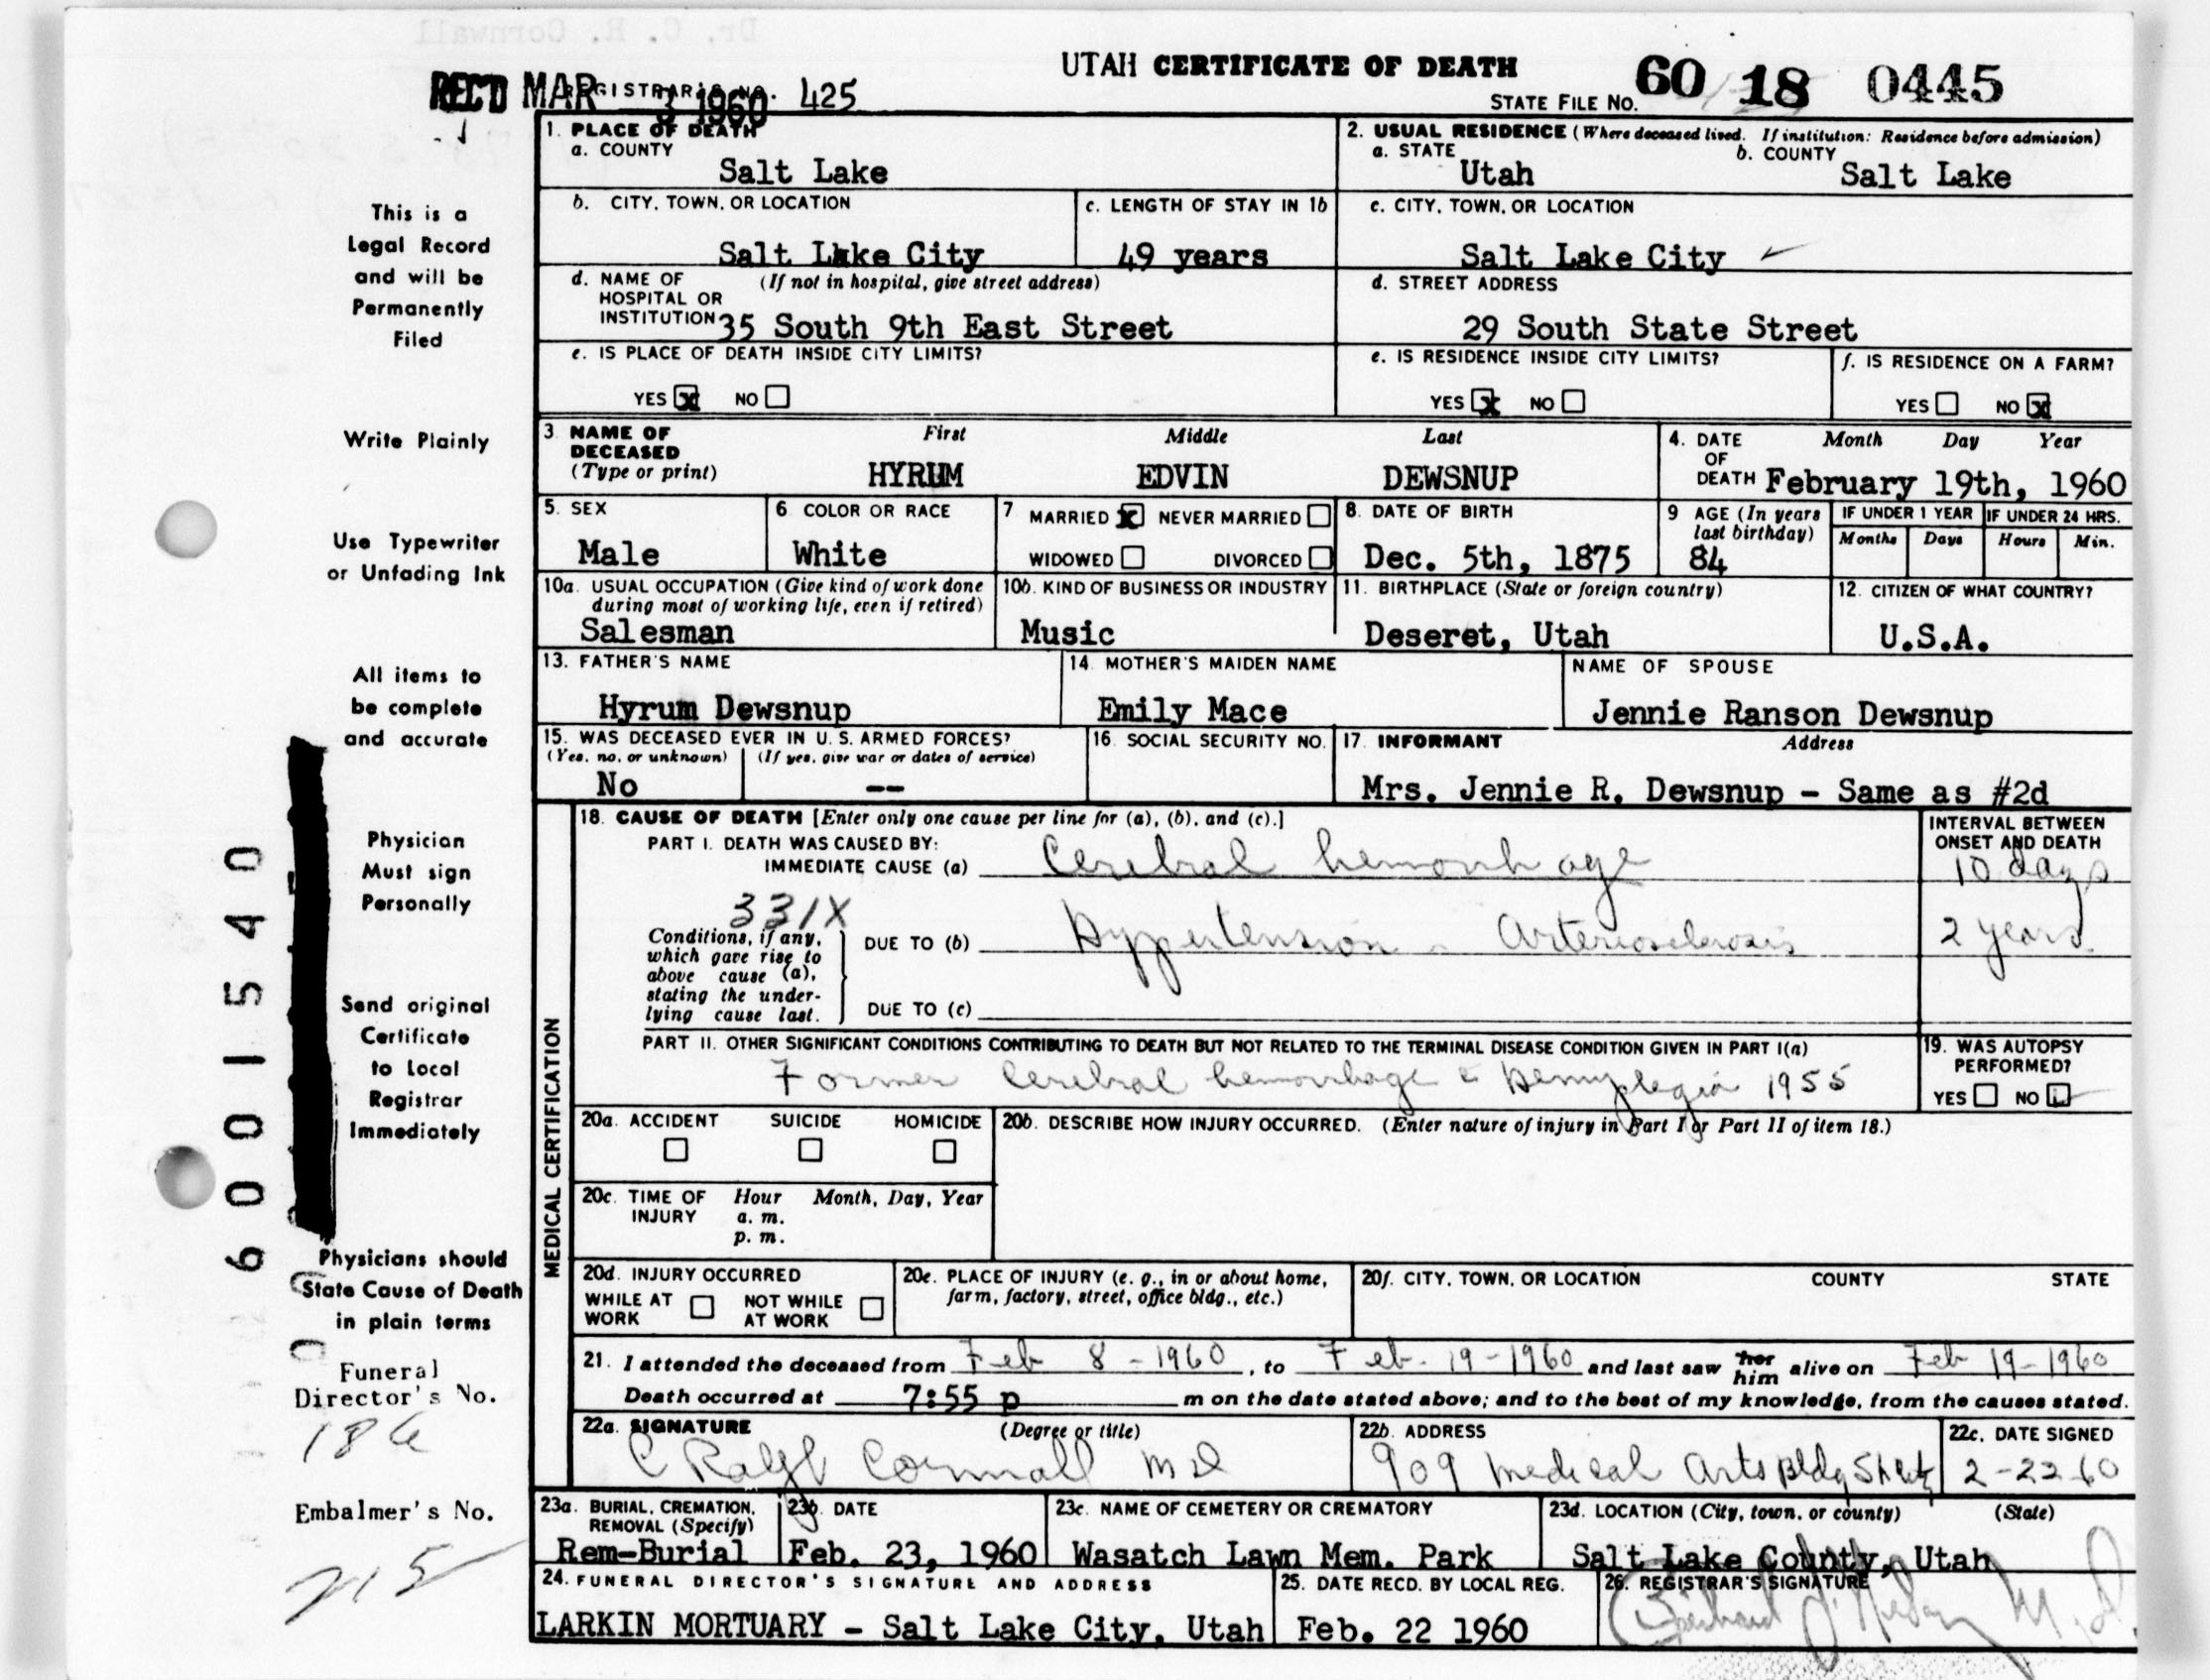 Dr. C. R. Cornwall
UTAH CERTIFICATE OF DEATH
REC'D MAR 3 1960 REGISTRAR'S NO. 425
STATE FILE NO. 60 18 0445
1. PLACE OF DEATH
a. COUNTY
Salt Lake
2. USUAL RESIDENCE (Where deceased lived. If institution: Residence before admission)
a. STATE b. COUNTY
Utah Salt Lake
b. CITY, TOWN, OR LOCATION
Salt Lake City
c. LENGTH OF STAY IN 1b
49 years
c. CITY, TOWN, OR LOCATION
Salt Lake City
d. NAME OF HOSPITAL OR INSTITUTION (If not in hospital, give street address)
35 South 9th East Street
d. STREET ADDRESS
29 South State Street
e. IS PLACE OF DEATH INSIDE CITY LIMITS?
YES x NO
e. IS RESIDENCE INSIDE CITY LIMITS?
YES x NO
f. IS RESIDENCE ON A FARM?
YES NO x
3 NAME OF DECEASED (Type or print)
First Middle Last
HYRUM EDVIN DEWSNUP
4. DATE OF DEATH Month Day Year
February 19th, 1960
5. SEX
Male
6 COLOR OR RACE
White
7 MARRIED x NEVER MARRIED
WIDOWED DIVORCED
8. DATE OF BIRTH
Dec. 5th, 1875
9 AGE (In years last birthday)
84
IF UNDER 1 YEAR IF UNDER 24 HRS.
Months Days Hours Min.
10a. USUAL OCCUPATION (Give kind of work done during most of working life, even if retired)
Salesman
10b. KIND OF BUSINESS OR INDUSTRY
Music
11. BIRTHPLACE (State or foreign country)
Deseret, Utah
12. CITIZEN OF WHAT COUNTRY?
U.S.A.
13. FATHER'S NAME
Hyrum Dewsnup
14. MOTHER'S MAIDEN NAME
Emily Mace
NAME OF SPOUSE
Jennie Ranson Dewsnup
15. WAS DECEASED EVER IN U. S. ARMED FORCES?
(Yes, no, or unknown) (If yes, give war or dates of service)
No --
16. SOCIAL SECURITY NO.
17. INFORMANT Address
Mrs. Jennie R. Dewsnup - Same as #2d
MEDICAL CERTIFICATION
18. CAUSE OF DEATH [Enter only one cause per line for (a), (b), and (c).]
PART I. DEATH WAS CAUSED BY:
IMMEDIATE CAUSE (a) Cerebral hemorrhage
INTERVAL BETWEEN ONSET AND DEATH
10 days
331X
Conditions, if any, which gave rise to above cause (a), stating the underlying cause last.
DUE TO (b) Hyppertension - Arteriosclerosis
2 years
DUE TO (c)
PART II. OTHER SIGNIFICANT CONDITIONS CONTRIBUTING TO DEATH BUT NOT RELATED TO THE TERMINAL DISEASE CONDITION GIVEN IN PART I(a)
Former Cerebral hemorrhage c Hemyplegia 1955
19. WAS AUTOPSY PERFORMED?
YES NO
20a. ACCIDENT SUICIDE HOMICIDE
20b. DESCRIBE HOW INJURY OCCURRED. (Enter nature of injury in Part I or Part II of item 18.)
20c. TIME OF INJURY Hour Month, Day, Year
a. m.
p. m.
20d. INJURY OCCURRED
WHILE AT WORK NOT WHILE AT WORK
20e. PLACE OF INJURY (e. g., in or about home, farm, factory, street, office bldg., etc.)
20f. CITY, TOWN, OR LOCATION COUNTY STATE
21. I attended the deceased from Feb 8 - 1960, to Feb. 19 - 1960 and last saw her him alive on Feb 19 - 1960
Death occurred at 7:55 p m on the date stated above; and to the best of my knowledge, from the causes stated.
22a. SIGNATURE (Degree or title)
C Ralph Cornwall MD
22b. ADDRESS
909 Medical Arts Bldg
22c. DATE SIGNED
2-22-60
23a. BURIAL, CREMATION, REMOVAL (Specify)
Rem-Burial
23b. DATE
Feb. 23, 1960
23c. NAME OF CEMETERY OR CREMATORY
Wasatch Lawn Mem. Park
23d. LOCATION (City, town, or county) (State)
Salt Lake County, Utah
24. FUNERAL DIRECTOR'S SIGNATURE AND ADDRESS
LARKIN MORTUARY - Salt Lake City, Utah
25. DATE RECD. BY LOCAL REG.
Feb. 22 1960
26. REGISTRAR'S SIGNATURE
M.D.
This is a
Legal Record
and will be
Permanently
Filed
Write Plainly
Use Typewriter
or Unfading Ink
All items to
be complete
and accurate
Physician
Must sign
Personally
Send original
Certificate
to Local
Registrar
Immediately
Physicians should
State Cause of Death
in plain terms
Funeral
Director's No.
186
Embalmer's No.
215
6001540